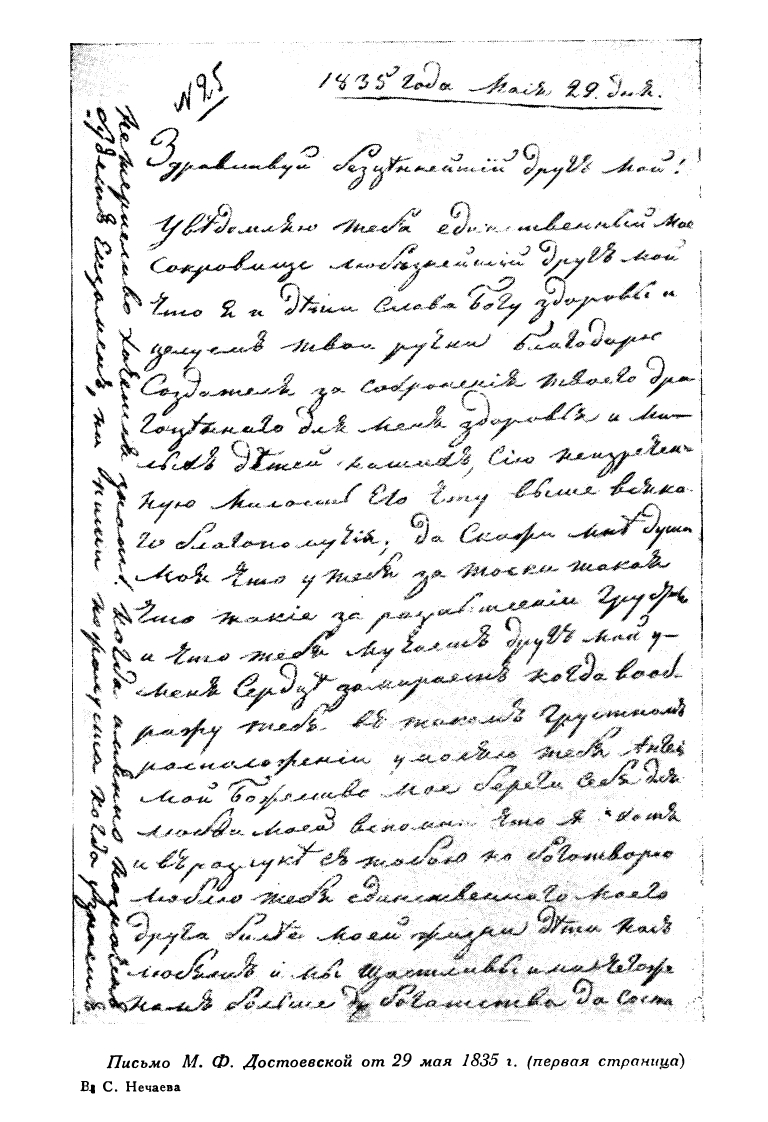 № 25
1835 года Маія 29. дня.
Здравствуй безцѣннейшій другъ мой!
Увѣдомляю тебя единственный мое
сокровище любѣзнейшій другъ мой
что я и дѣти слава Богу здоровы и
целуемъ твои ручки благодарю
Создателя за сохроненія твоего дра
гоцѣннаго для меня здоровья и ми–
лыхъ дѣтей нашихъ, сію неизречен-
ную милость Его чту выше всяка-
го благополучія; да Скажи мнѣ душа
моя что у тебя за тоска такая
что такіе за
и что тебя мучаетъ другъ мой у–
меня Сердцѣ замираетъ когда вооб-
ражу тебя въ такомъ грустномъ
расположеніи умоляю тебя Ангел
мой Божество мое береги себя для
любви моей вспомни что я хотя
и въ разлукѣ съ тобою но боготворю
люблю тебя единственного моего
друга болѣе моей жизни дѣти насъ
любятъ и мы щастливы ими чегоже
намъ больше богатства да соста
Нетерпеливо хочется знать когда именно назначенъ
будетъ Екзаменъ, напиши пожалуста когда узнаешъ
Письмо М. Ф. Достоевской от 29 мая 1835 г. (первая страница)
В. С. Нечаева